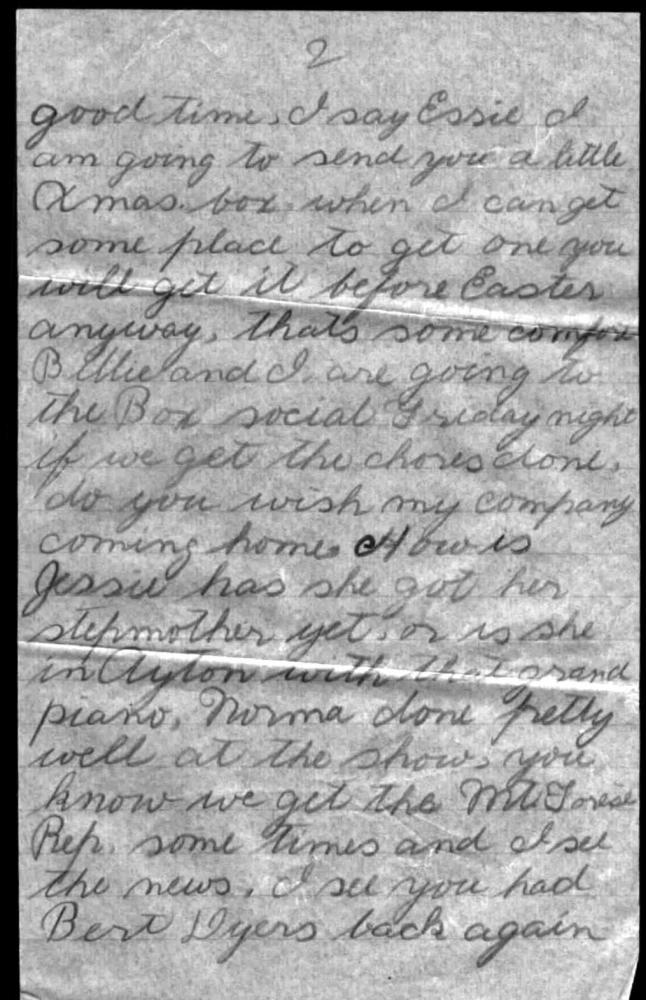 2
good time, I say Essie I
am going to send you a little
Xmas. box when I can get
some place to get one you
will get it before Easter
anyway, thats some comfor
Billie and I. are going to
the Box social Friday night
if we get the chores done,
do you wish my company
coming home. How is
Jessie has she got her
stepmother yet, or is she
in Ayton with that grand
piano, Norma done pretty
well at the show, you
know we get the Mt. Forest
Rep. some times and I see
the news, I see you had
Bert Dyers back again